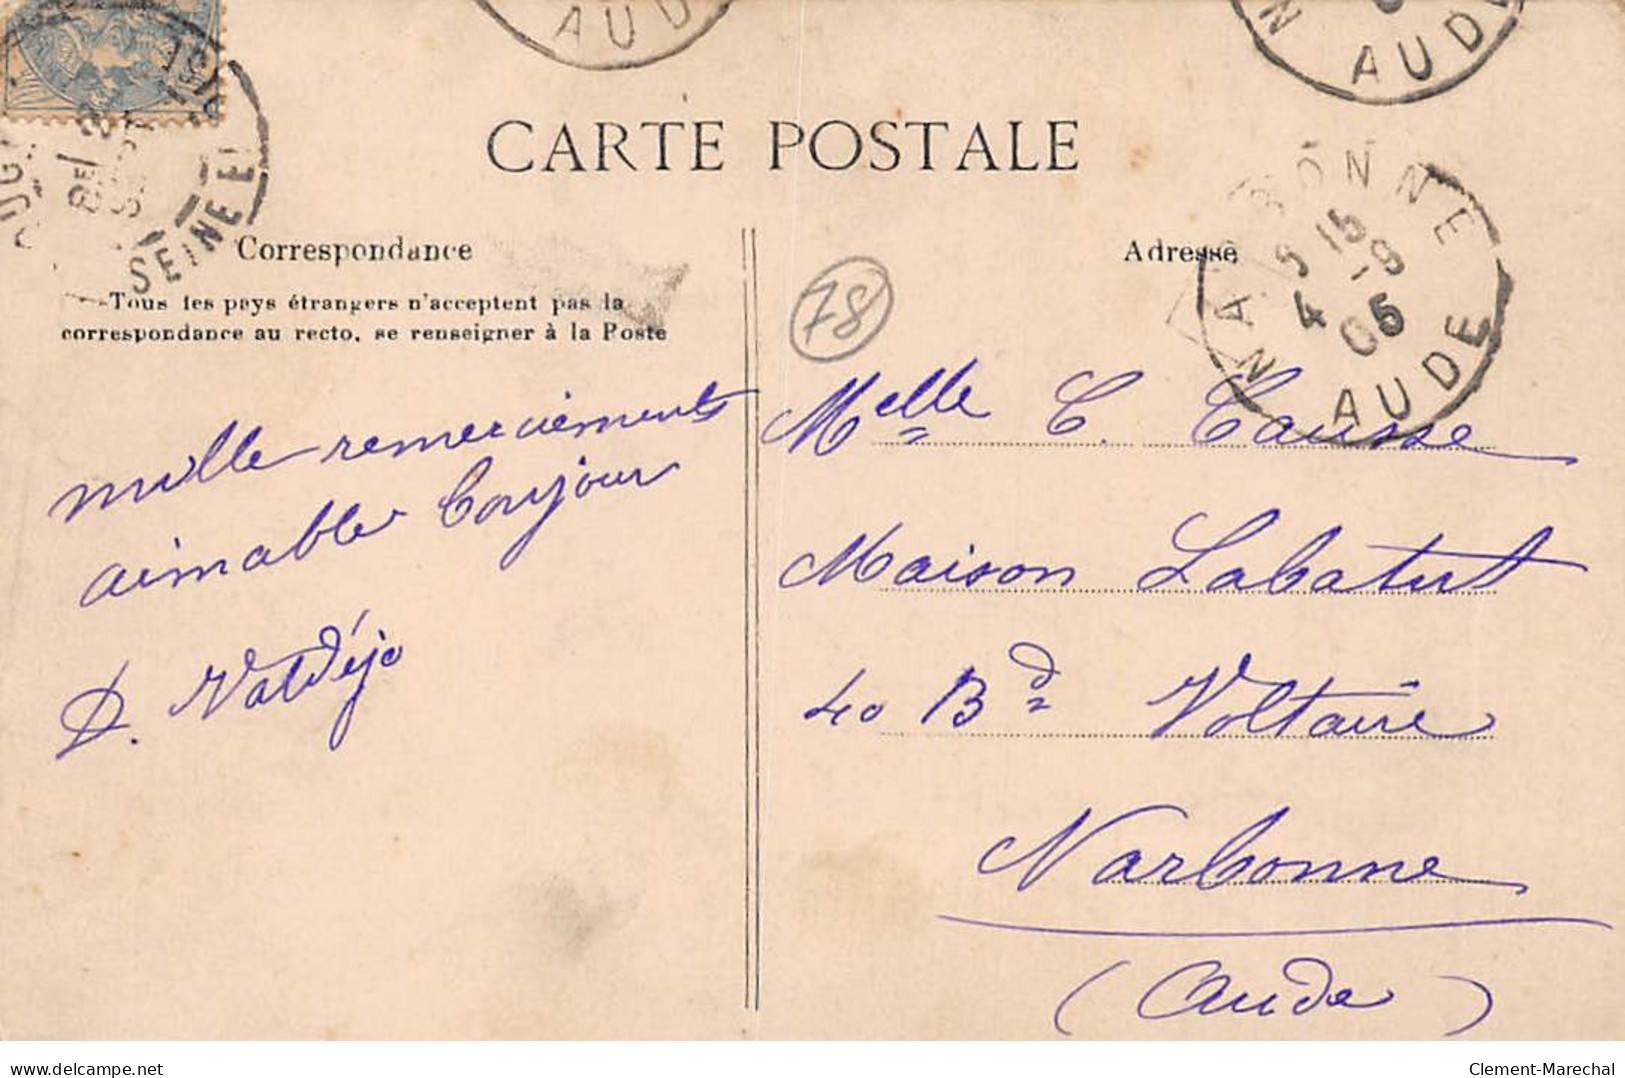 AUD
N AUDE
CARTE POSTALE
NARBONNE
9 15
4 -9
05
AUDE
SEINE E
Correspondance
Adresse
Tous les pays étrangers n'acceptent pas la
correspondance au recto, se renseigner à la Poste
78
mille remerciements
aimable bonjour
D. Valdéjo
Melle C. Causse
Maison Labatut
40 Bd Voltaire
Narbonne
(Aude)
delcampe.net
Clement-Marechal